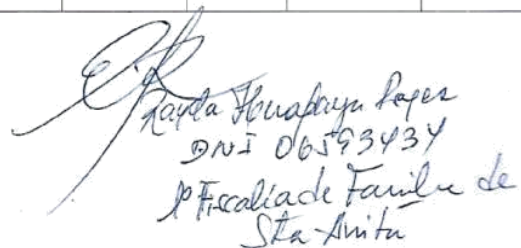 Rayda Huapaya Rojas
DNI 06593434
1º Fiscalia de Familia de
Sta-Anita